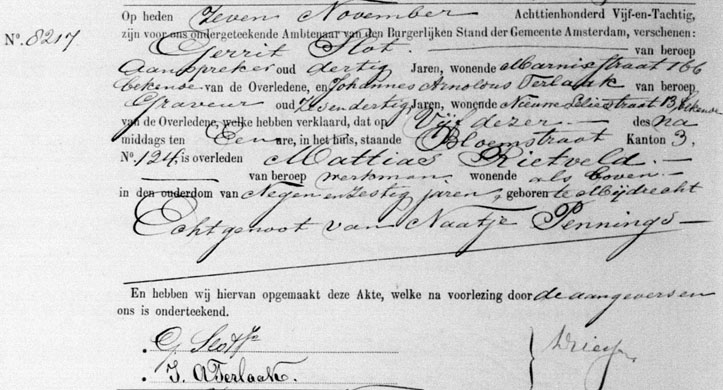 Nº. 8217
Op heden Zeven November Achttienhonderd Vijf-en-Tachtig,
zijn voor ons ondergeteekende Ambtenaar van den Burgerlijken Stand der Gemeente Amsterdam, verschenen:
Gerrit Slot van beroep
Aanspreker oud dertig Jaren, wonende Marnixstraat 166
bekende van de Overledene, en Johannes Arnoldus Terlaak van beroep
Graveur oud Jaren, wonende Nieuwe Leliestraat bekende
van de Overledene, welke hebben verklaard, dat op Vijf dezer des na
middags ten Een ure, in het huis, staande Bloemstraat Kanton 3,
Nº. 124 is overleden Mattias Rietveld
van beroep werkman wonende als boven
in den ouderdom van Negen en zestig jaren, geboren te Mijdrecht
Echtgenoot van Naatje Pennings
En hebben wij hiervan opgemaakt deze Akte, welke na voorlezing door de aangevers en
ons is onderteekend.
G Slot
J. A Terlaak.